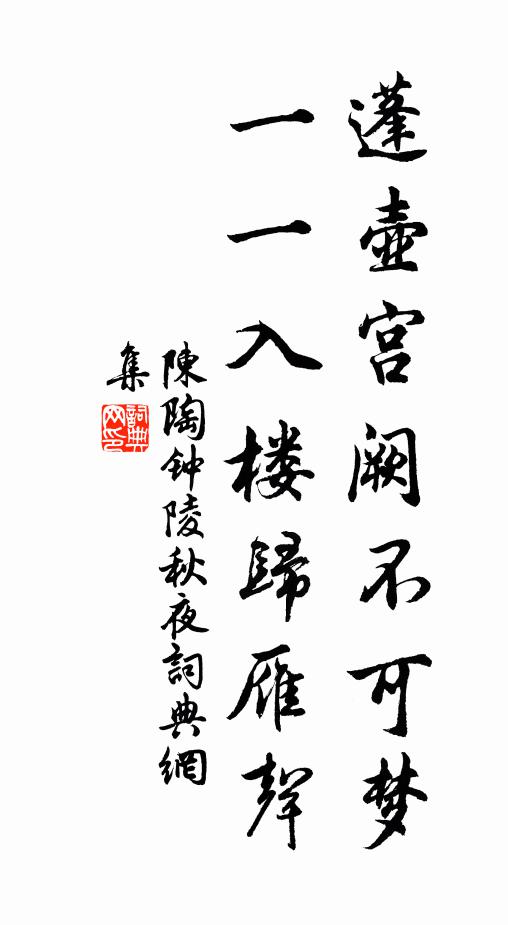 蓬壺宫阙不可梦
一一入楼歸雁聲
陳陶钟陵秋夜詞典網
集
詞典
网印